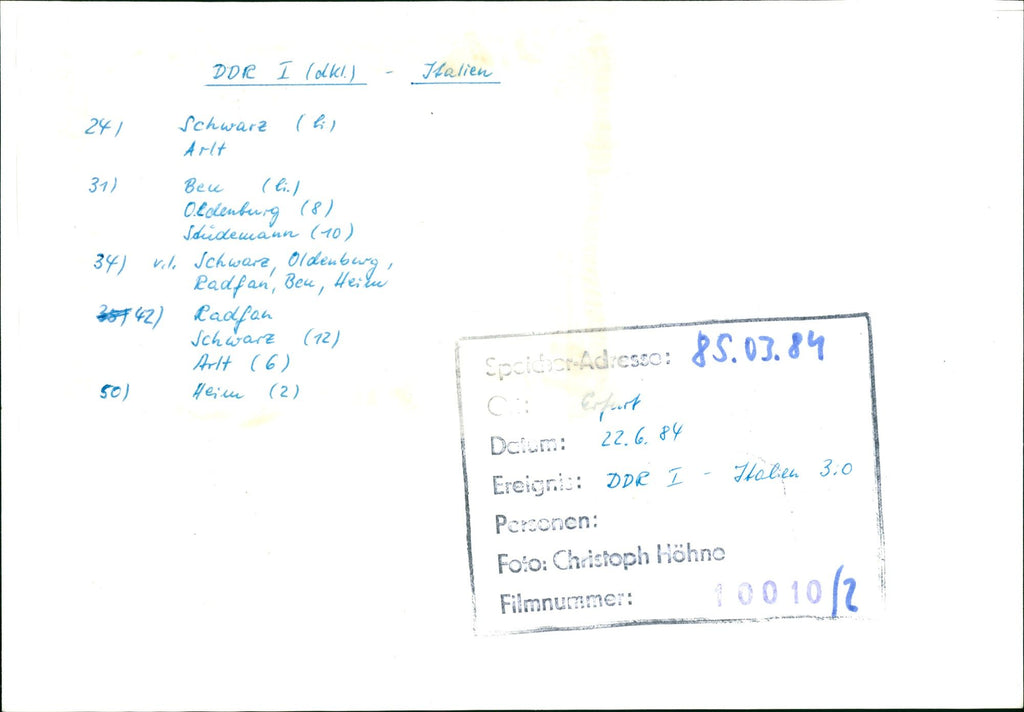 DDR I (dkl.) - Italien
24) Schwarz (li)
Arlt
31) Beu (li.)
Oldenburg (8)
Stüdemann (10)
34) v.l. Schwarz, Oldenburg,
Radfan, Beu, Heim
42) Radfan
Schwarz (12)
Arlt (6)
50) Heim (2)
Speicher-Adresse: 85.03.84
Ort: Erfurt
Datum: 22.6.84
Ereignis: DDR I - Italien 3:0
Personen:
Foto: Christoph Höhne
Filmnummer: 10010/2